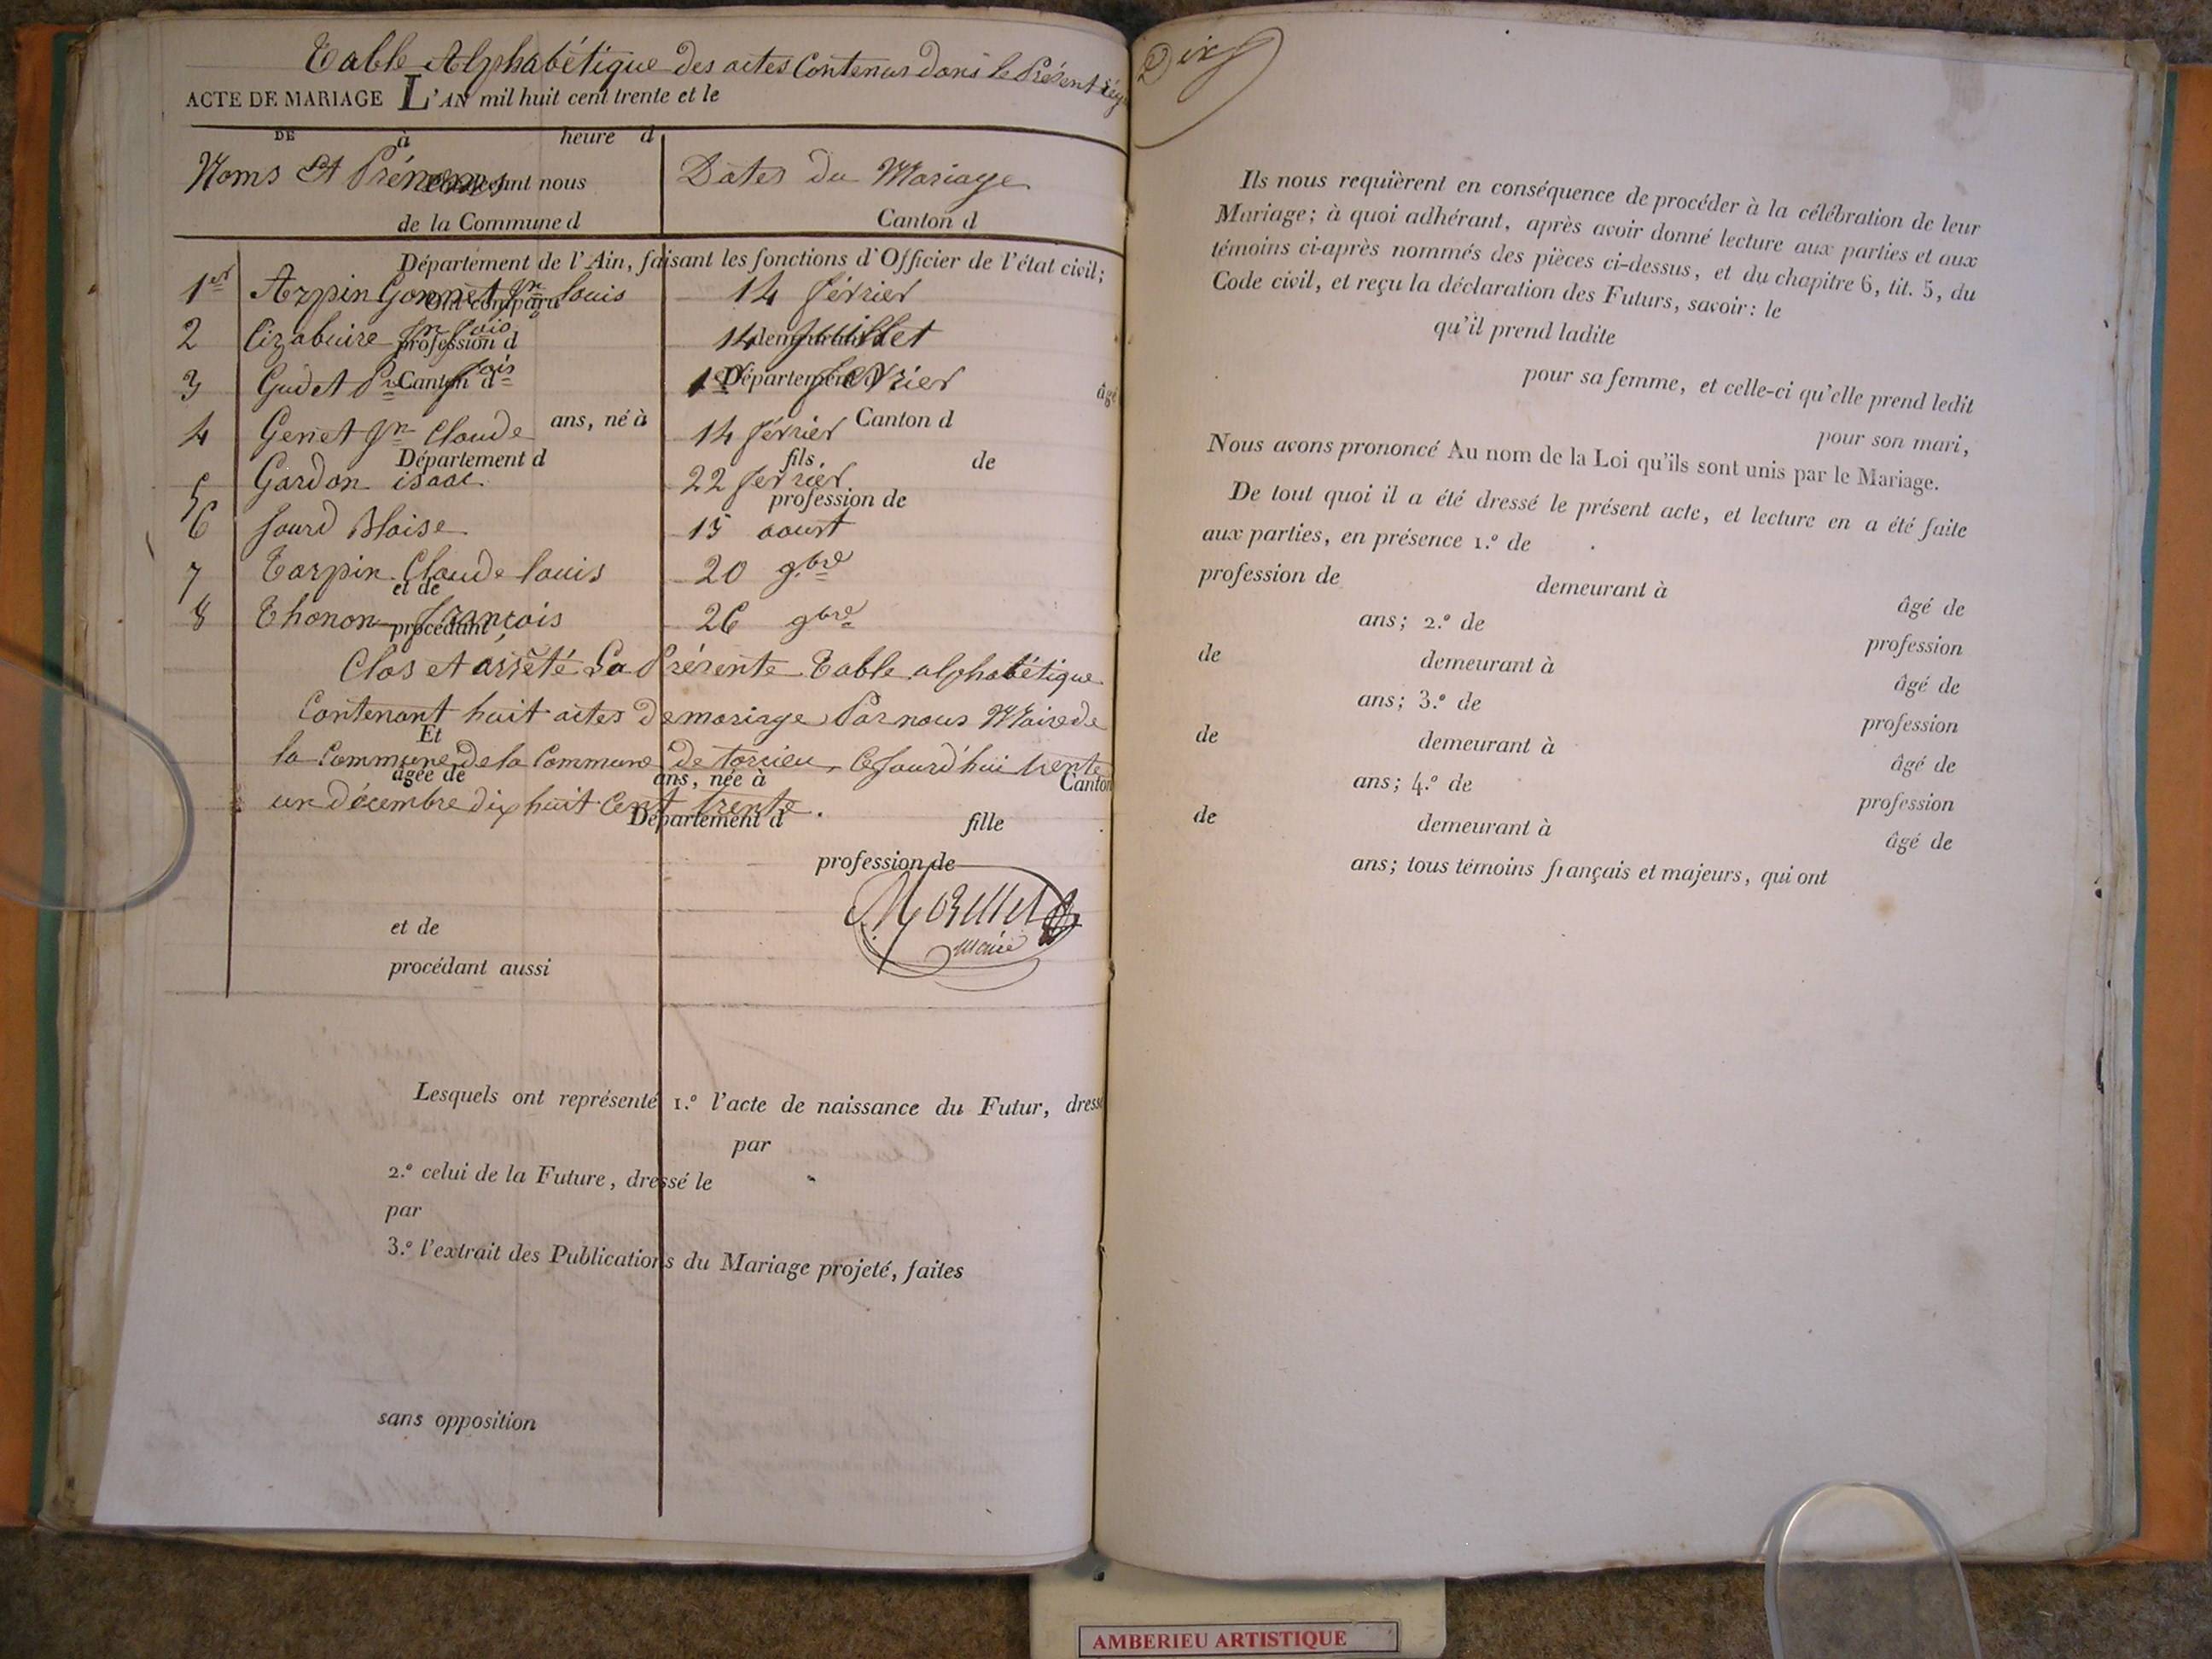 Table Alphabétique des actes Contenus dans le Présent
ACTE DE MARIAGE L'AN mil huit cent trente et le
DE à heure d
Noms Et Prénoms nous
Dates du Mariage
de la Commune d Canton d
Département de l'Ain, faisant les fonctions d'Officier de l'état civil;
1er Arpin Gonnet Jn Louis 14 février
Ont comparu
2 Jn fois 14 Juillet
profession d demeurant
3 Gudet fois 1er février
Canton d Département âgé
4 Genet Jn Claude 14 février
ans, né à Canton d
Département d fils de
5 Gardon isaac 22 février
profession de
6 Jourd Blaise 15 aoust
7 Tarpin Claude louis 20 9bre
et de
8 Thonon françois 26 9bre
procédant
Clos et arrêté La Présente Table alphabétique
Contenant huit actes de mariage Par nous Maire de
Et
la Commune de la Commune de torcieu, Cejourd'hui trente
âgée de ans, née à Canton
un décembre dix huit Cent trente.
Département d fille
profession de
Maire
et de
procédant aussi
Lesquels ont représenté 1.º l'acte de naissance du Futur, dressé
par
2.º celui de la Future, dressé le
par
3.º l'extrait des Publications du Mariage projeté, faites
sans opposition
Dix
Ils nous requièrent en conséquence de procéder à la célébration de leur
Mariage; à quoi adhérant, après avoir donné lecture aux parties et aux
témoins ci-après nommés des pièces ci-dessus, et du chapitre 6, tit. 5, du
Code civil, et reçu la déclaration des Futurs, savoir: le
qu'il prend ladite
pour sa femme, et celle-ci qu'elle prend ledit
pour son mari,
Nous avons prononcé Au nom de la Loi qu'ils sont unis par le Mariage.
De tout quoi il a été dressé le présent acte, et lecture en a été faite
aux parties, en présence 1.º de
profession de demeurant à âgé de
ans; 2.º de profession
de demeurant à âgé de
ans; 3.º de profession
de demeurant à âgé de
ans; 4.º de profession
de demeurant à âgé de
ans; tous témoins français et majeurs, qui ont
AMBERIEU ARTISTIQUE